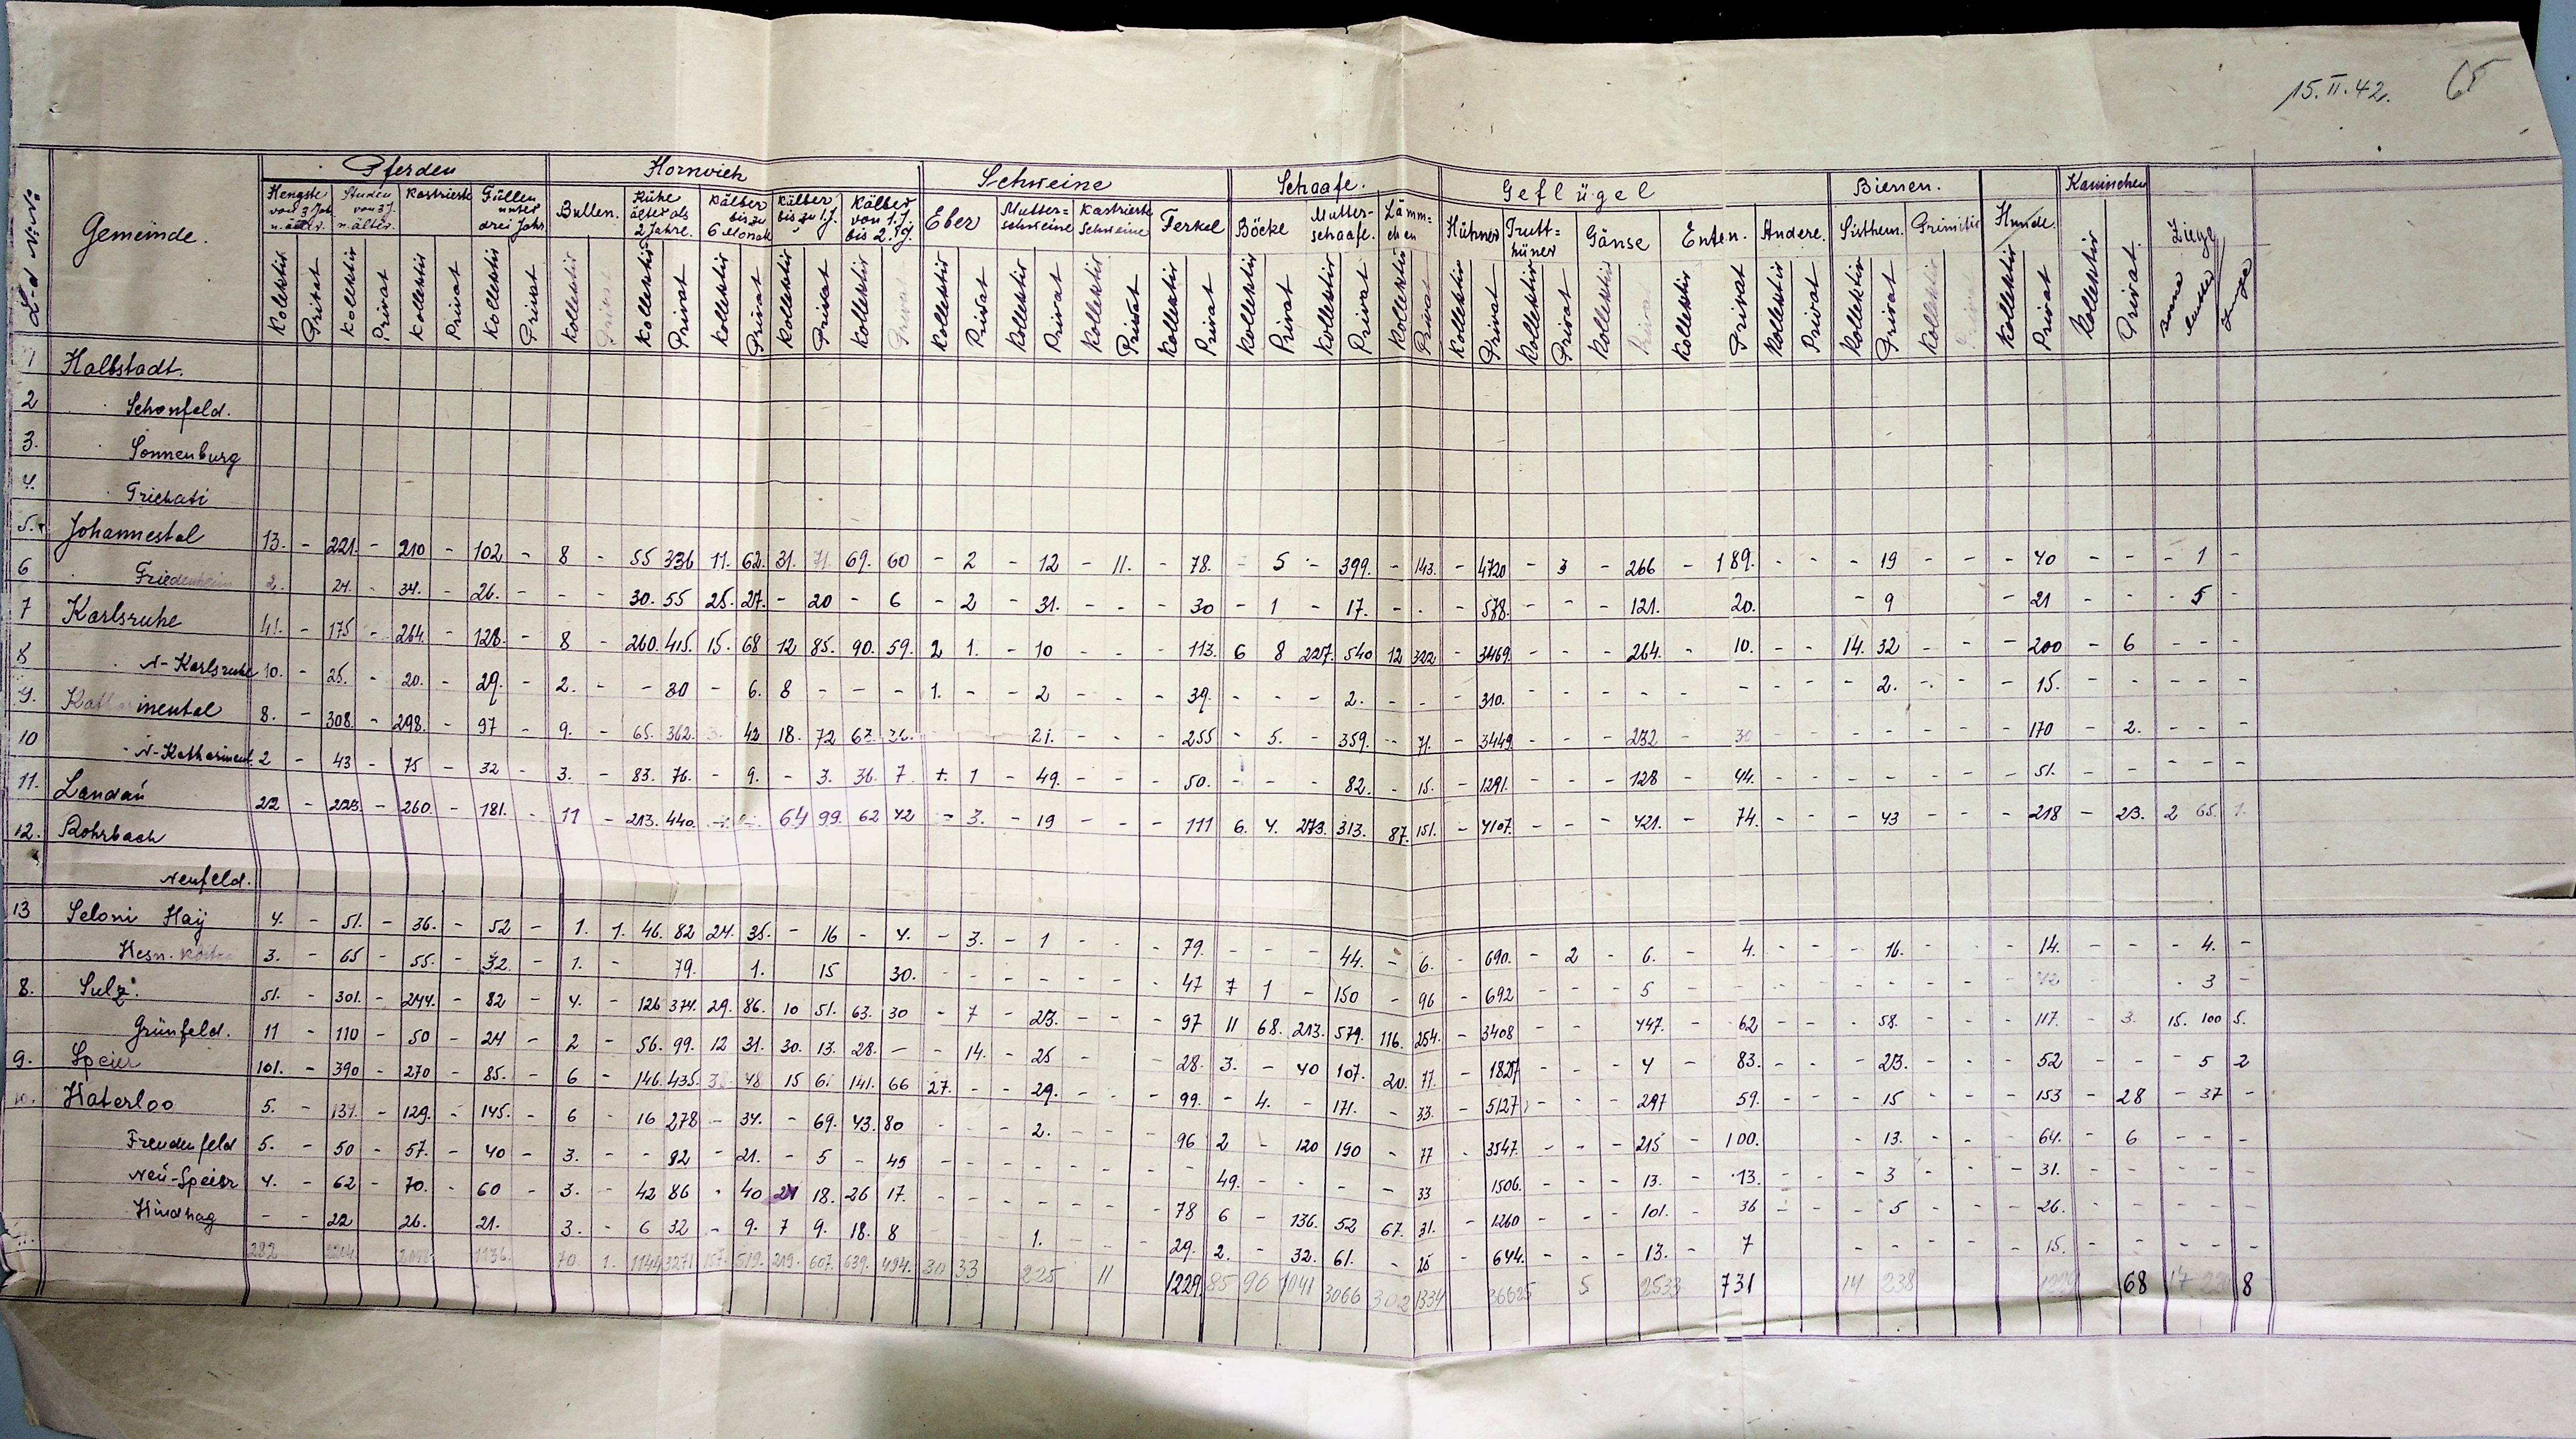 15.II.42. 65
L-d N:N:
Gemeinde.
Pferden Hornvieh Schweine Schaafe. Geflügel Bienen. Hunde. Kaninchen Ziege
Hengste von 3 Jah. u. älter. Studen von 3 J. u. älter. Kastrierte Füllen unter drei Jahr
Bullen. Kühe älter als 2 Jahre. Kälber bis zu 6 Monate Kälber bis zu 1.J. Kälber von 1.J. bis 2.J.
Eber Mutter=schweine Kastrierte Schweine Ferkel
Böcke Mutter-schaafe. Lämm=chen
Hühner Trutt=hüner Gänse Enten. Andere.
Kollektiv Privat Kollektiv Privat Kollektiv Privat Kollektiv Privat Kollektiv Privat Kollektiv Privat Kollektiv Privat Kollektiv Privat Kollektiv Privat Kollektiv Privat Kollektiv Privat Kollektiv Privat Kollektiv Privat Kollektiv Privat Kollektiv Privat Kollektiv Privat Kollektiv Privat Kollektiv Privat Kollektiv Privat Kollektiv Privat Kollektiv Privat Kollektiv Privat Kollektiv Kollektiv Privat Kollektiv Privat.
1 Halbstadt.
2 Schonfeld.
3. Sonnenburg
4. Trichati
5. Johannestal 13. - 221. - 210 - 102 - 8 - 55 336 11. 62. 31. 71. 69. 60 - 2 - 12 - 11. - 78. - 5 - 399. - 143. - 4720 - 3 - 266 - 189. - - - 19 - - - 40 - - - 1 -
6 Friedenheim 2. 24. - 34. - 26. - - - 30. 55 25. 27. - 20 - 6 - 2 - 31. - - - 30 - 1 - 17. - - - 578. - - - 121. 20. - 9 - 21 - - - 5 -
7 Karlsruhe 41. - 175 - 264. - 128. - 8 - 260. 415. 15. 68 12 85. 90. 59. 2 1. - 10 - - - 113. 6 8 227. 540 12 322 - 3469. - - - 264. - 10. - - 14. 32 - - - 200 - 6 - - -
8 N-Karlsruhe 10. - 25. - 20. - 29. - 2. - - 80 - 6. 8 - - - 1. - - 2 - - - 39. - - - 2. - - - 310. - - - - - - - - - 2. - - - 15. - - - - -
9. Katharinental 8. - 308. - 298. - 97 - 9. - 65. 362. 42 18. 72 67. 36. 21. - - - 255 - 5. - 359. - 71. - 3449 - - - 232 - 30 - - - - - - - 170 - 2. - - -
10 N-Katharinent. 2 - 43 - 75 - 32 - 3. - 83. 76. - 9. - 3. 36. 7. 1 - 49. - - - 50. - - - 82. - 15. - 1291. - - - 128 - 44. - - - - - - - 51. - - - - -
11. Landau 22 - 223. - 260. - 181. - 11 - 213. 440. 64 99. 62 42 - 3. - 19 - - - 111 6. 4. 273. 313. 87. 151. - 4107. - - - 421. - 74. - - - 43 - - - 218 - 23. 2 65. 1.
12. Rohrbach
Neufeld.
13 Seloni Haÿ 4. - 51. - 36. - 52 - 1. 1. 46. 82 24. 35. - 16 - 4. - 3. - 1 - - - 79. - - - 44. - 6. - 690. - 2 - 6. - 4. - - - 16. - - 14. - - - 4. -
3. - 65 - 55. - 32. - 1. - 79. 1. 15 30. - - - - - - - 47 7 1 - 150 - 96 - 692 - - - 5 - - - - - - - - 3 -
8. Sulz. 51. - 301. - 244. - 82 - 4. - 126 374. 29. 86. 10 51. 63. 30 - 7 - 23. - - - 97 11 68. 213. 579. 116. 254. - 3408 - - 447. - 62 - - - 58. - - - 117. - 3. 15. 100 5.
Grünfeld. 11 - 110 - 50 - 24 - 2 - 56. 99. 12 31. 30. 13. 28. - - 14. - 25 - - 28. 3. - 40 107. 20. 77. - 1827 - - - 4 - 83. - - 23. - - 52 - - - 5 2
9. Speier 101. - 390 - 270 - 85. - 6 - 146. 435. 48 15 6. 141. 66 27. - - 29. - - - 99. - 4. - 171. - 33. - 5127 - - - 297 59. - - - 15 - - - 153 - 28 - 37 -
10. Waterloo 5. - 137. - 129. - 145. - 6 - 16 278 - 34. - 69. 43. 80 - - - 2. - - - 96 2 - 120 190 - 77 - 3547. - - - 215 - 100. - 13. - - - 64. - 6 - - -
Freudenfeld 5. - 50 - 57. - 40 - 3. - - 82 - 21. - 5 - 45 - - - - - - - - 49. - - - - 33 1506. - - - 13. - 13. - - - 3 - - - 31. - - - - -
Neu-Speier 4. - 62 - 70. - 60 - 3. - 42 86 - 40 21 18. 26 17. - - - - - - - 78 6 - 136. 52 67. 31. - 1260 - - - 101. - 36 - - - 5 - - - 26. - - - - -
Windhag - - 22 26. 21. 3. - 6 32 - 9. 7 9. 18. 8 1. - - - 29. 2. - 32. 61. - 25 - 644. - - - 13. - 7 - - - - - 15. - - - - -
282 1136. 70 1. 1144 3271 519. 219. 607. 639. 494. 30 33 225 11 1229. 85 96 1041 3066 302 1334 36625 5 2533 731 14 238 68 17 8